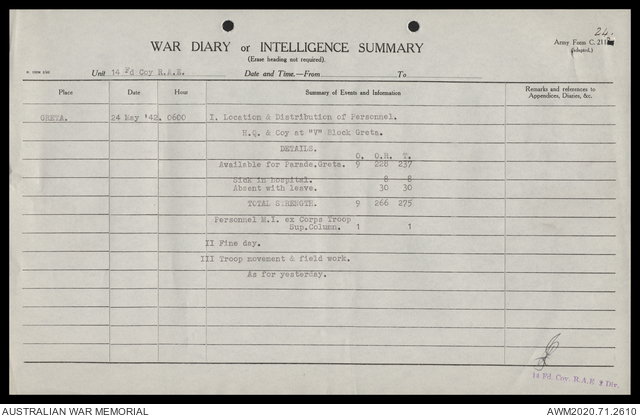 24.
WAR DIARY or INTELLIGENCE SUMMARY
Army Form C. 2118
(Adapted.)
(Erase heading not required).
Unit 14 Fd Coy R.A.E. Date and Time.—From To
Place Date Hour Summary of Events and Information Remarks and references to Appendices, Diaries, &c.
GRETA. 24 May '42. 0600 I. Location & Distribution of Personnel.
H.Q. & Coy at "V" Block Greta.
DETAILS.
O. O.R. T.
Available for Parade, Greta. 9 228 237
Sick in hospital. 8 8
Absent with leave. 30 30
TOTAL STRENGTH. 9 266 275
Personnel M.I. ex Corps Troop
Sup. Column. 1 1
II Fine day.
III Troop movement & field work.
As for yesterday.
14 Fd. Coy. R.A.E 2 Div.
AUSTRALIAN WAR MEMORIAL AWM2020.71.2610